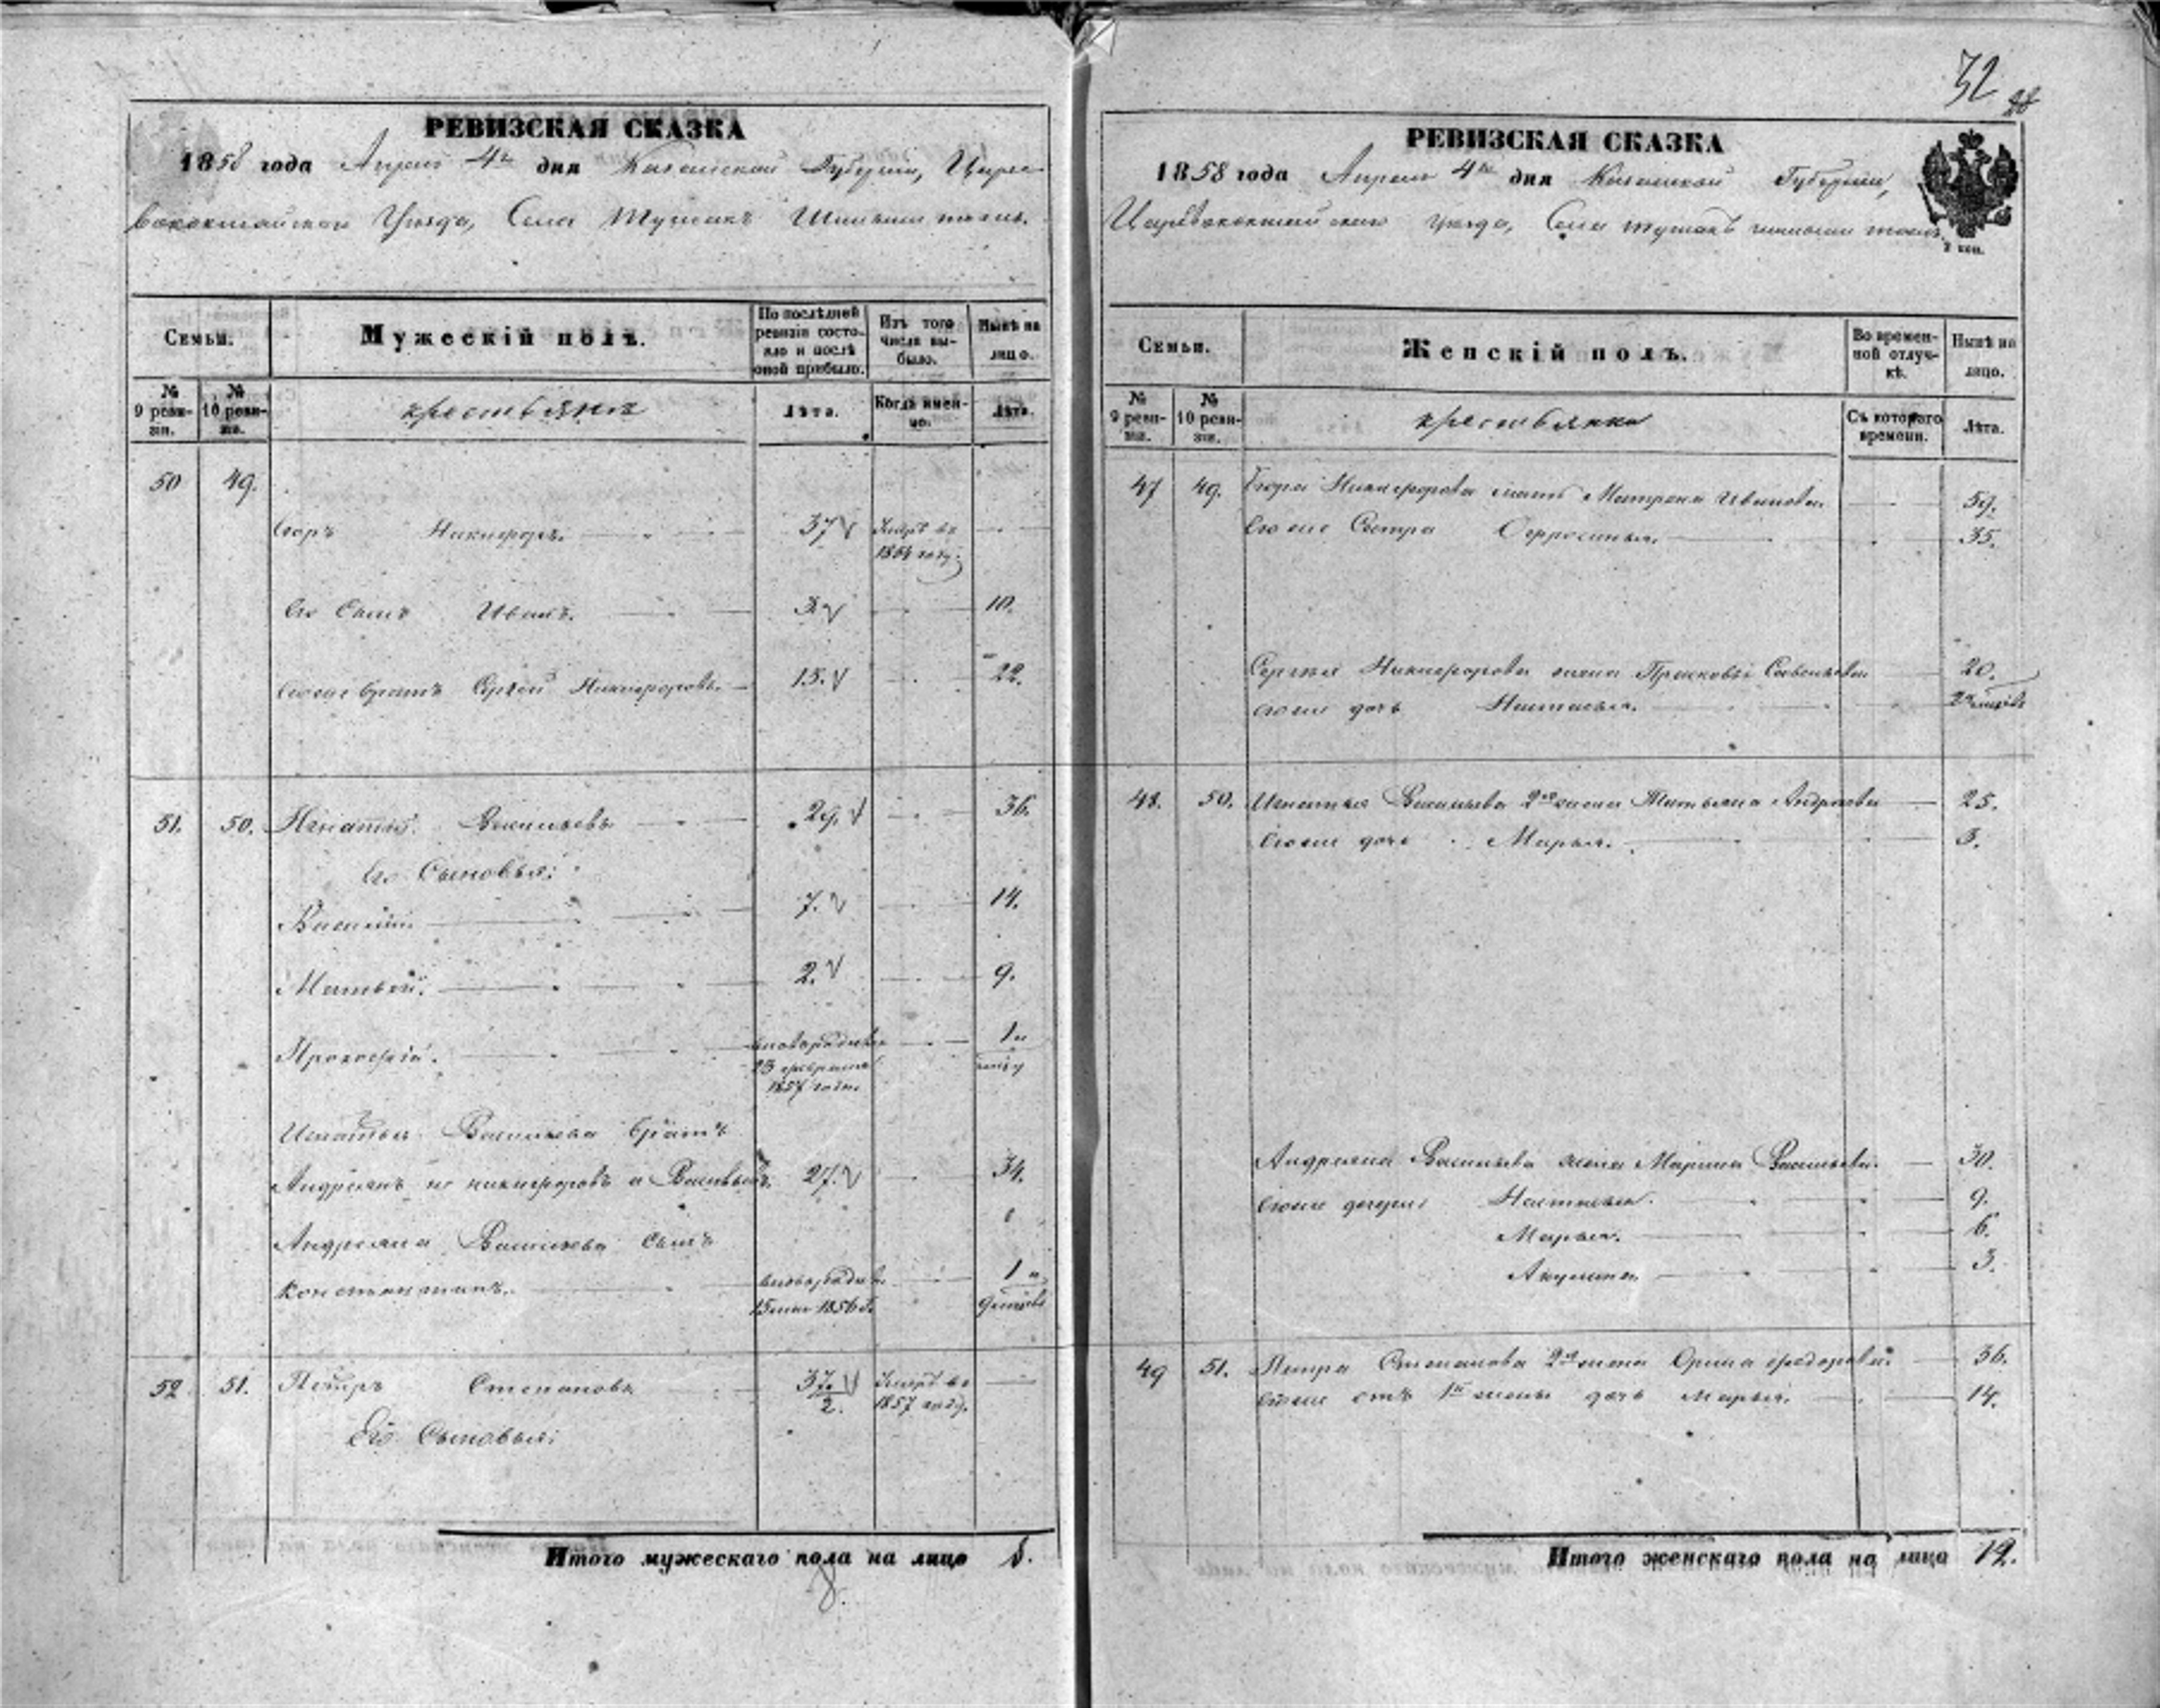 РЕВИЗСКАЯ СКАЗКА
1858 года Апреля 4го дня Казанской Губернiи, Царе
вококшайскаго Уѣзда, Села
Семьи.
Мужескiй полъ.
По послѣдней ревизiи состояло и послѣ оной прибыло.
Изъ того числа выбыло.
Нынѣ на лицо.
№ 9 ревизiи.
№ 10 ревизiи.
крестьяне
Лѣта.
Когда именно.
Лѣта.
50 49.
Егоръ Никифоръ. 37
1854 году.
Его Сынъ Иванъ. 3. 10.
Егоже братъ Сергей Никифоровъ 15. 22.
51. 50. Игнатiй Васильевъ 29. 36.
Его Сыновья:
Василiй 7. 14.
Матвей. 2. 9.
Прокофiй. 1 и
23 февраля
1857 года.
Игнатья Васильева братъ
Андреянъ не никифоровъ а Васильевъ. 27. 34.
Андреяна Васильева сынъ
Константинъ. 1 и
15 1856 г. 9 месяцовъ
52 51. Петръ Степановъ 37. 2.
1857 году.
Его Сыновья:
Итого мужескаго пола на лицо 8.
8.
32
28
РЕВИЗСКАЯ СКАЗКА
1858 года Апреля 4го дня Казанской Губернiи,
Царевококшайскаго уѣзда, Села
2 коп.
Семьи.
Женскiй полъ.
Во временной отлучкѣ.
Нынѣ на лицо.
№ 9 ревизiи.
№ 10 ревизiи.
крестьянки
Съ котораго времени.
Лѣта.
47 49. Егора Никифорова мать Матрена Иванова 59.
Егоже Сестра Офросинья. 35.
Сергея Никифорова жена Прасковья Савельева 20.
Егоже дочь Настасья. 2
48. 50. Игнатья Васильева 2я жена Татьяна Андреева 25.
Егоже дочь Марья. 3.
Андреяна Васильева жена Марина Васильева. 30.
Егоже дочери Настасья. 9.
Марья. 6.
Акулина 3.
49 51. Петра Степанова 2я жена Орина федорова 36.
Егоже отъ 1й жены дочь Марья. 14.
Итого женскаго пола на лицо 12.